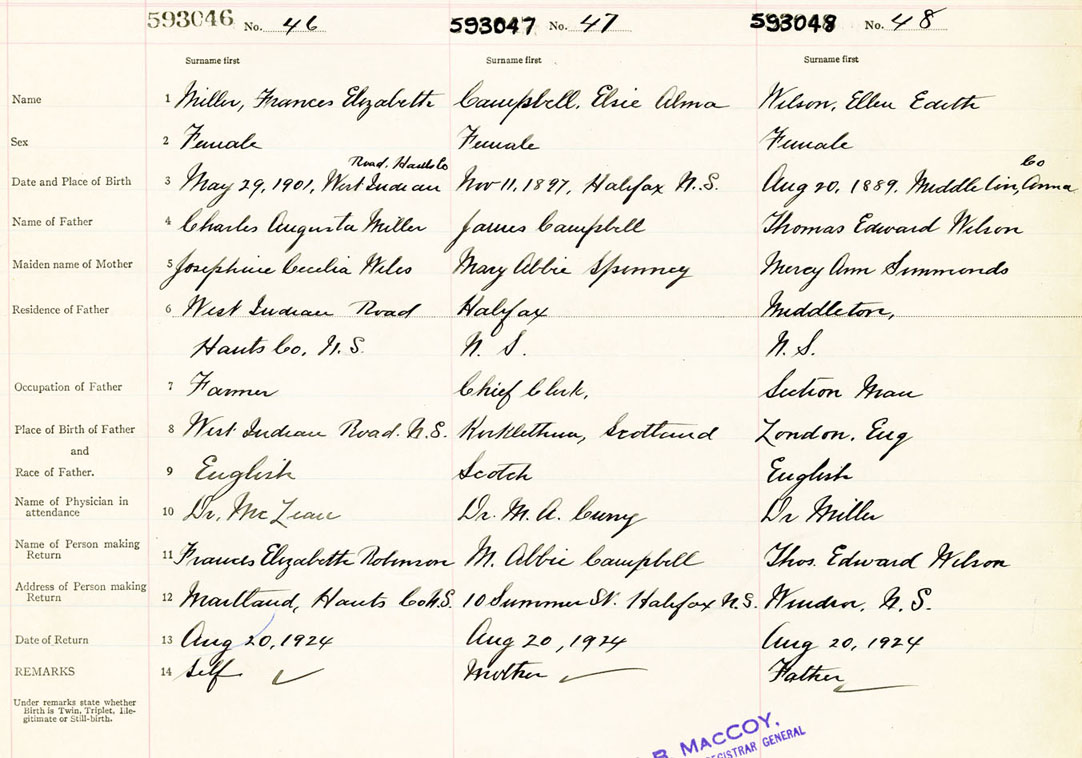 593046 No. 46 593047 No. 47 593048 No. 48
Surname first Surname first Surname first
Name 1 Miller, Frances Elizabeth Campbell, Elsie Alma Wilson, Ellen Edith
Sex 2 Female Female Female
Road, Hants Co Co
Date and Place of Birth 3 May 29, 1901, West Indian Nov 11, 1897, Halifax N.S. Aug 20, 1889, Middleton, Anna
Name of Father 4 Charles Augusta Miller James Campbell Thomas Edward Wilson
Maiden name of Mother 5 Josephine Cecilia Wiles Mary Abbie Spinney Mercy Ann Simmonds
Residence of Father 6 West Indian Road Halifax Middleton,
Hants Co, N.S. N. S. N. S.
Occupation of Father 7 Farmer Chief Clerk, Section Man
Place of Birth of Father 8 West Indian Road. N.S. Scotland London, Eng
and
Race of Father. 9 English Scotch English
Name of Physician in
attendance 10 Dr. McLean Dr. M. A. Curry Dr Miller
Name of Person making
Return 11 Francis Elizabeth Robinson M. Abbie Campbell Thos. Edward Wilson
Address of Person making
Return 12 Maitland, Hants Co N.S. 10 Summer St. Halifax N.S. Windsor, N.S.
Date of Return 13 Aug 20, 1924 Aug 20, 1924 Aug 20, 1924
REMARKS 14 Self Mother Father
Under remarks state whether
Birth is Twin, Triplet, Ille-
gitimate or Still-birth.
B. MACCOY,
REGISTRAR GENERAL